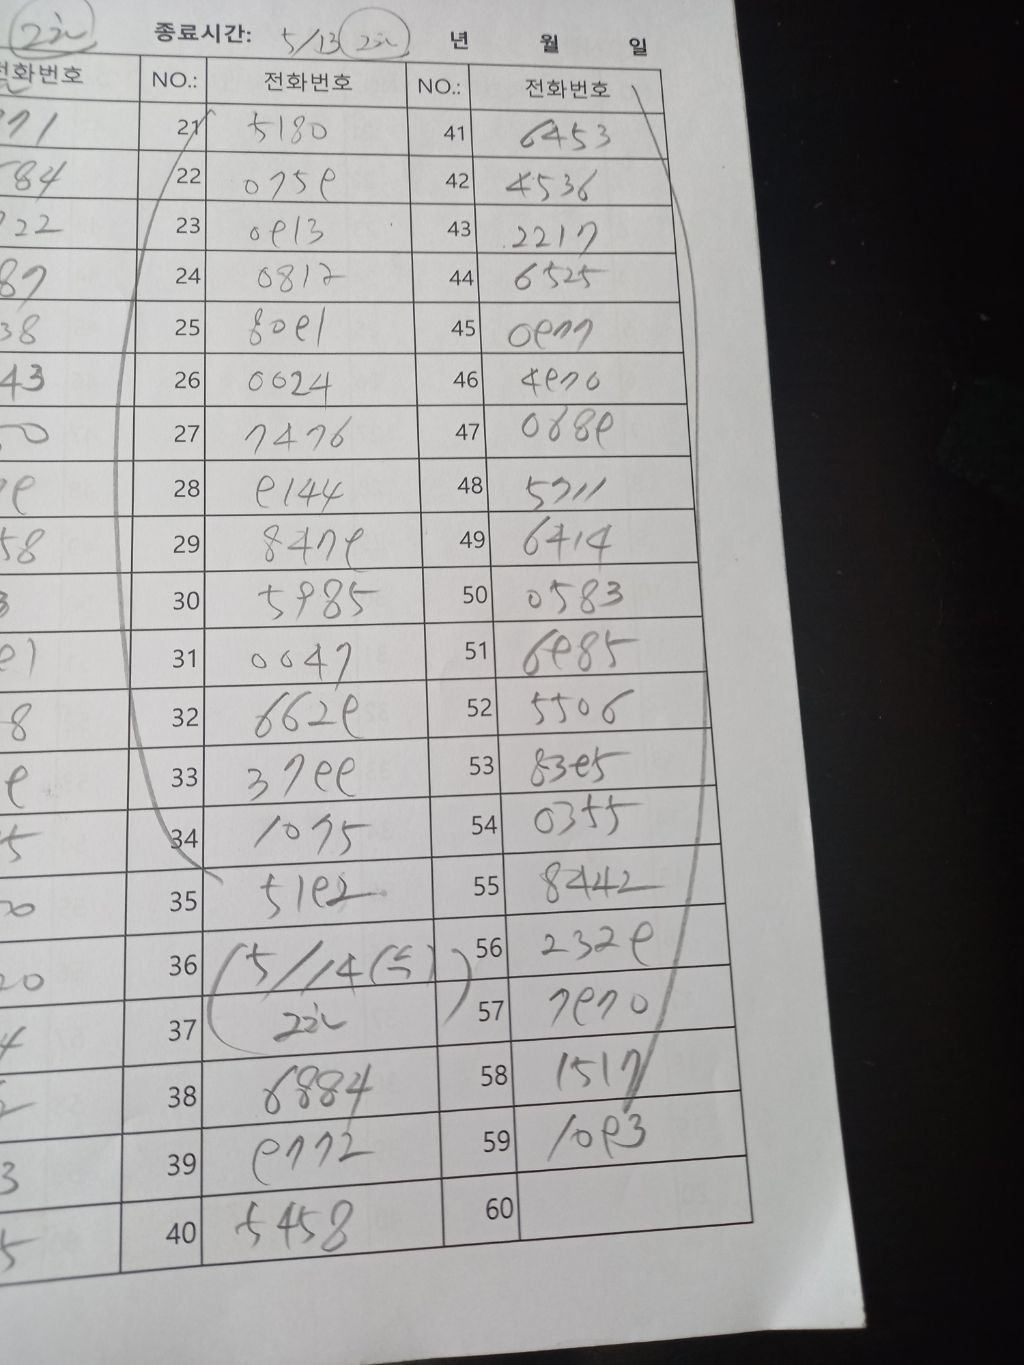 2차 종료시간: 5/13 (2차) 년 월 일
전화번호 NO.: 전화번호 NO.: 전화번호
971 21 5180 41 6453
584 22 0759 42 4536
722 23 0913 43 2217
87 24 0812 44 6525
38 25 8091 45 0977
43 26 0024 46 4970
50 27 7476 47 0689
79 28 9144 48 5711
58 29 8479 49 6414
3 30 5985 50 0583
91 31 0047 51 6985
8 32 6629 52 5506
9 33 3799 53 8395
5 34 1075 54 0355
20 35 5192 55 8442
20 36 (5/14 (토) 56 2329
4 37 2차) 57 7970
2 38 6884 58 1517
3 39 9772 59 1093
5 40 5458 60